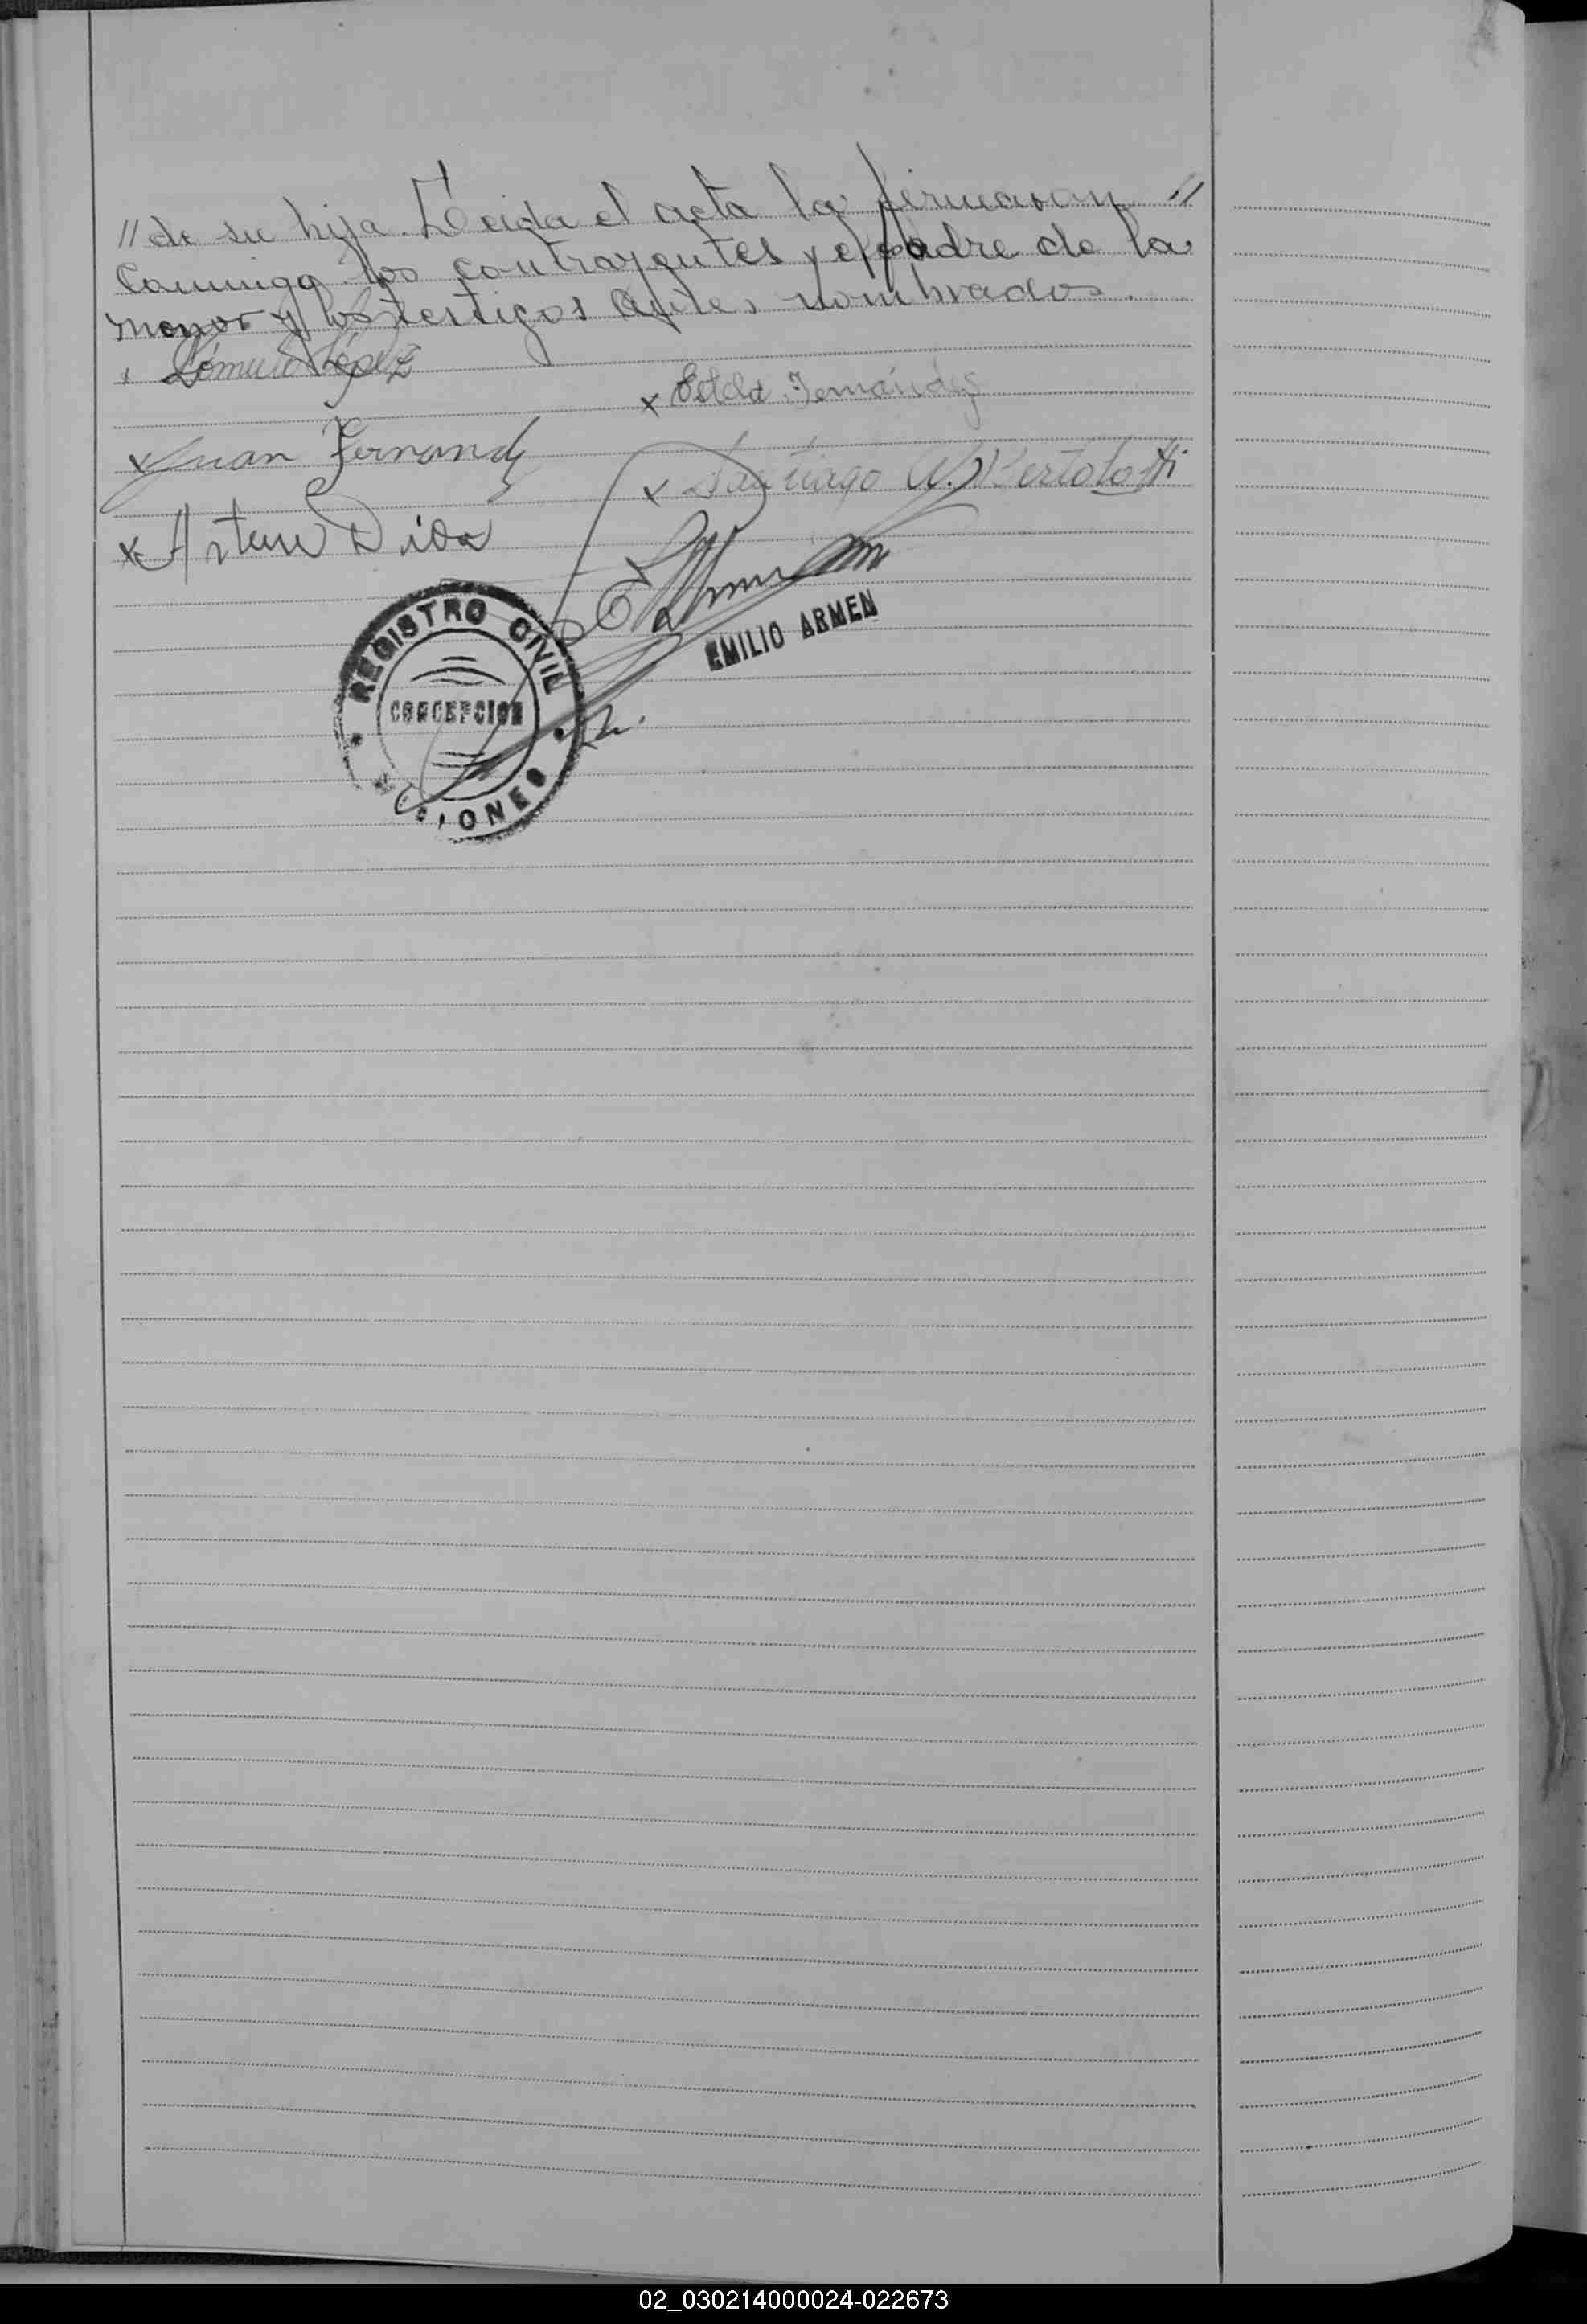 // de su hija. Leida el acta la firmaron //
conmigo los contrayentes y el padre de la
menor y los testigos antes nombrados.
x Rómulo López
x Estela Fernández
x Juan Fernandz
x Santiago Bertolotti
x Arturo
EMILIO ARMEN
REGISTRO CIVIL
CONCEPCION
MISIONES
02_030214000024-022673